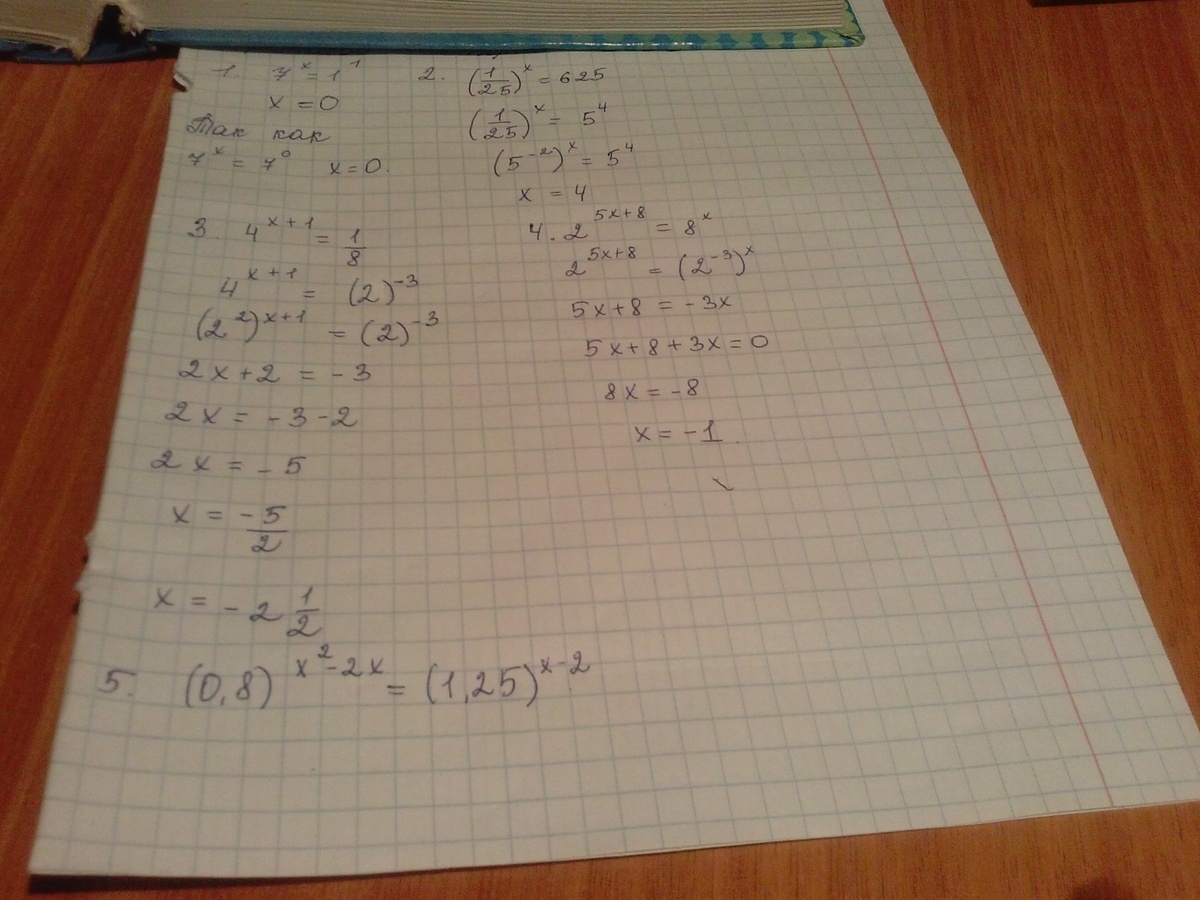 1. 7^x = 1^1
x = 0
Так как
7^x = 7^0 x = 0.
2. (1/25)^x = 625
(1/25)^x = 5^4
(5^-2)^x = 5^4
x = 4
3. 4^x+1 = 1/8
4^x+1 = (2)^-3
(2^2)^x+1 = (2)^-3
2x+2 = -3
2x = -3-2
2x = -5
x = -5/2
x = -2 1/2
4. 2^5x+8 = 8^x
2^5x+8 = (2^-3)^x
5x+8 = -3x
5x+8+3x=0
8x = -8
x = -1
5. (0,8)^x^2-2x = (1,25)^x-2